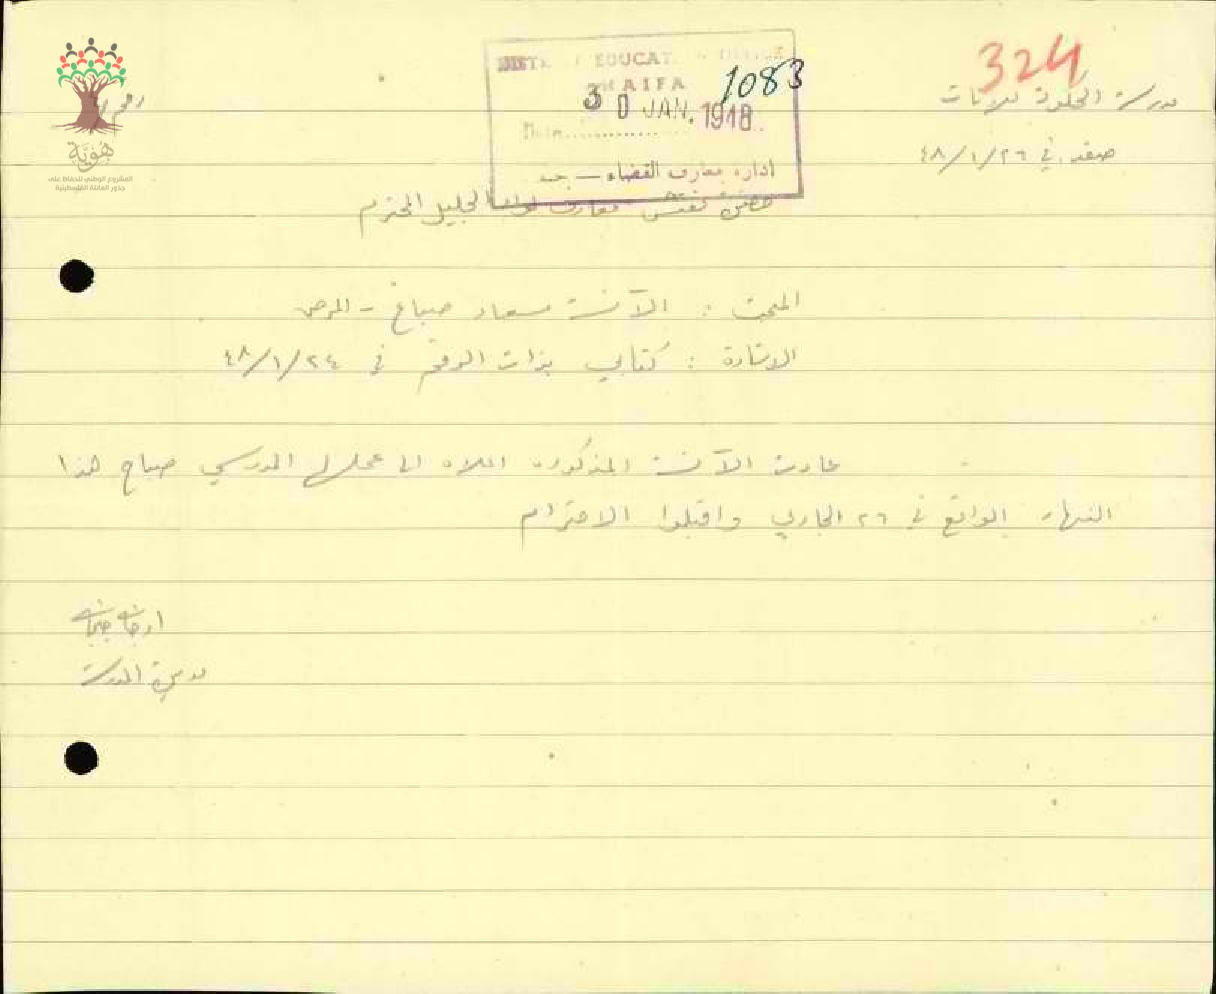 324
مدرسة الحكومة للبنات
رقم
صفد في ٢٦/١/٤٨
DISTRICT EDUCATION OFFICE
HAIFA
1083
30 JAN. 1948
Date
ادارة معارف القضاء – حيفا
حضرة مفتش معارف لواء الجليل المحترم
هُوِيَّة
المشروع الوطني للحفاظ على
جذور العائلة الفلسطينية
المبحث : الآنسة سعاد صباغ – المرض
الاشارة : كتابي بذات الرقم في ٢٤/١/٤٨
عادت الآنسة المذكورة اعلاه الى عملها المدرسي صباح هذا
النهار الواقع في ٢٦ الجاري واقبلوا الاحترام
مديرة المدرسة